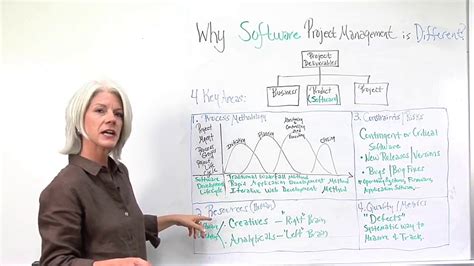 Why Software Project Management is Different?
Project
Deliverables
Business
"Product"
(Software)
Project
4 Key Areas:
1. Process Methodology
Project
Mgmt
Process
Project
Life
Cycle
Initiating
Planning
Monitoring
Controlling
Executing
Closing
Software
Development
Lifecycle
Traditional Waterfall Method
Rapid Application Development Method
Iterative Web Development Method
2. Resources (Human)
Creatives - "Right" Brain
Analyticals - "Left" Brain
3. Constraints / Risks
Contingent or Critical
Software
• New Releases / Versions
• Bugs / Bug Fixes
• Operating Systems, Firmware,
Application Software...
4. Quality / Metrics
"Defects"
Systematic way to
Measure & Track.